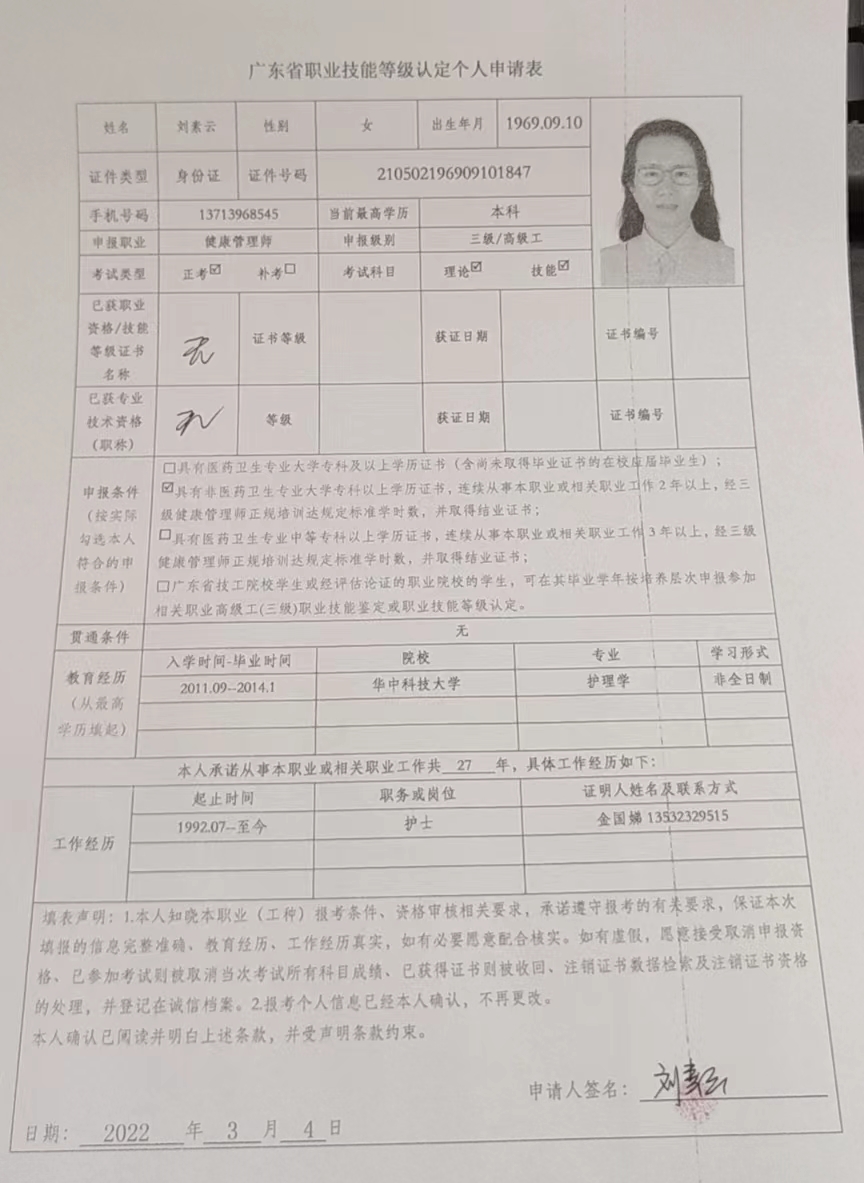 广东省职业技能等级认定个人申请表
姓名 刘素云 性别 女 出生年月 1969.09.10
证件类型 身份证 证件号码 210502196909101847
手机号码 13713968545 当前最高学历 本科
申报职业 健康管理师 申报级别 三级/高级工
考试类型 正考☑ 补考□ 考试科目 理论☑ 技能☑
已获职业
资格/技能
等级证书
名称
无 证书等级 获证日期 证书编号
已获专业
技术资格
(职称)
无 等级 获证日期 证书编号
申报条件
(按实际
勾选本人
符合的申
报条件)
□具有医药卫生专业大学专科及以上学历证书(含尚未取得毕业证书的在校应届毕业生);
☑具有非医药卫生专业大学专科以上学历证书,连续从事本职业或相关职业工作2年以上,经三
级健康管理师正规培训达规定标准学时数,并取得结业证书;
□具有医药卫生专业中等专科以上学历证书,连续从事本职业或相关职业工作3年以上,经三级
健康管理师正规培训达规定标准学时数,并取得结业证书;
□广东省技工院校学生或经评估论证的职业院校的学生,可在其毕业学年按培养层次申报参加
相关职业高级工(三级)职业技能鉴定或职业技能等级认定。
贯通条件 无
教育经历
(从最高
学历填起)
入学时间-毕业时间 院校 专业 学习形式
2011.09--2014.1 华中科技大学 护理学 非全日制
本人承诺从事本职业或相关职业工作共 27 年,具体工作经历如下:
工作经历
起止时间 职务或岗位 证明人姓名及联系方式
1992.07--至今 护士 金国娣 13532329515
填表声明:1.本人知晓本职业(工种)报考条件、资格审核相关要求,承诺遵守报考的有关要求,保证本次
填报的信息完整准确、教育经历、工作经历真实,如有必要愿意配合核实。如有虚假,愿意接受取消申报资
格、已参加考试则被取消当次考试所有科目成绩、已获得证书则被收回、注销证书数据检索及注销证书资格
的处理,并登记在诚信档案。2.报考个人信息已经本人确认,不再更改。
本人确认已阅读并明白上述条款,并受声明条款约束。
申请人签名: 刘素云
日期: 2022 年 3 月 4 日